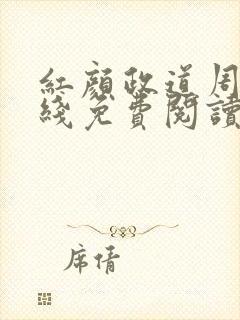 紅顏政道周
綫免費閱讀
席情